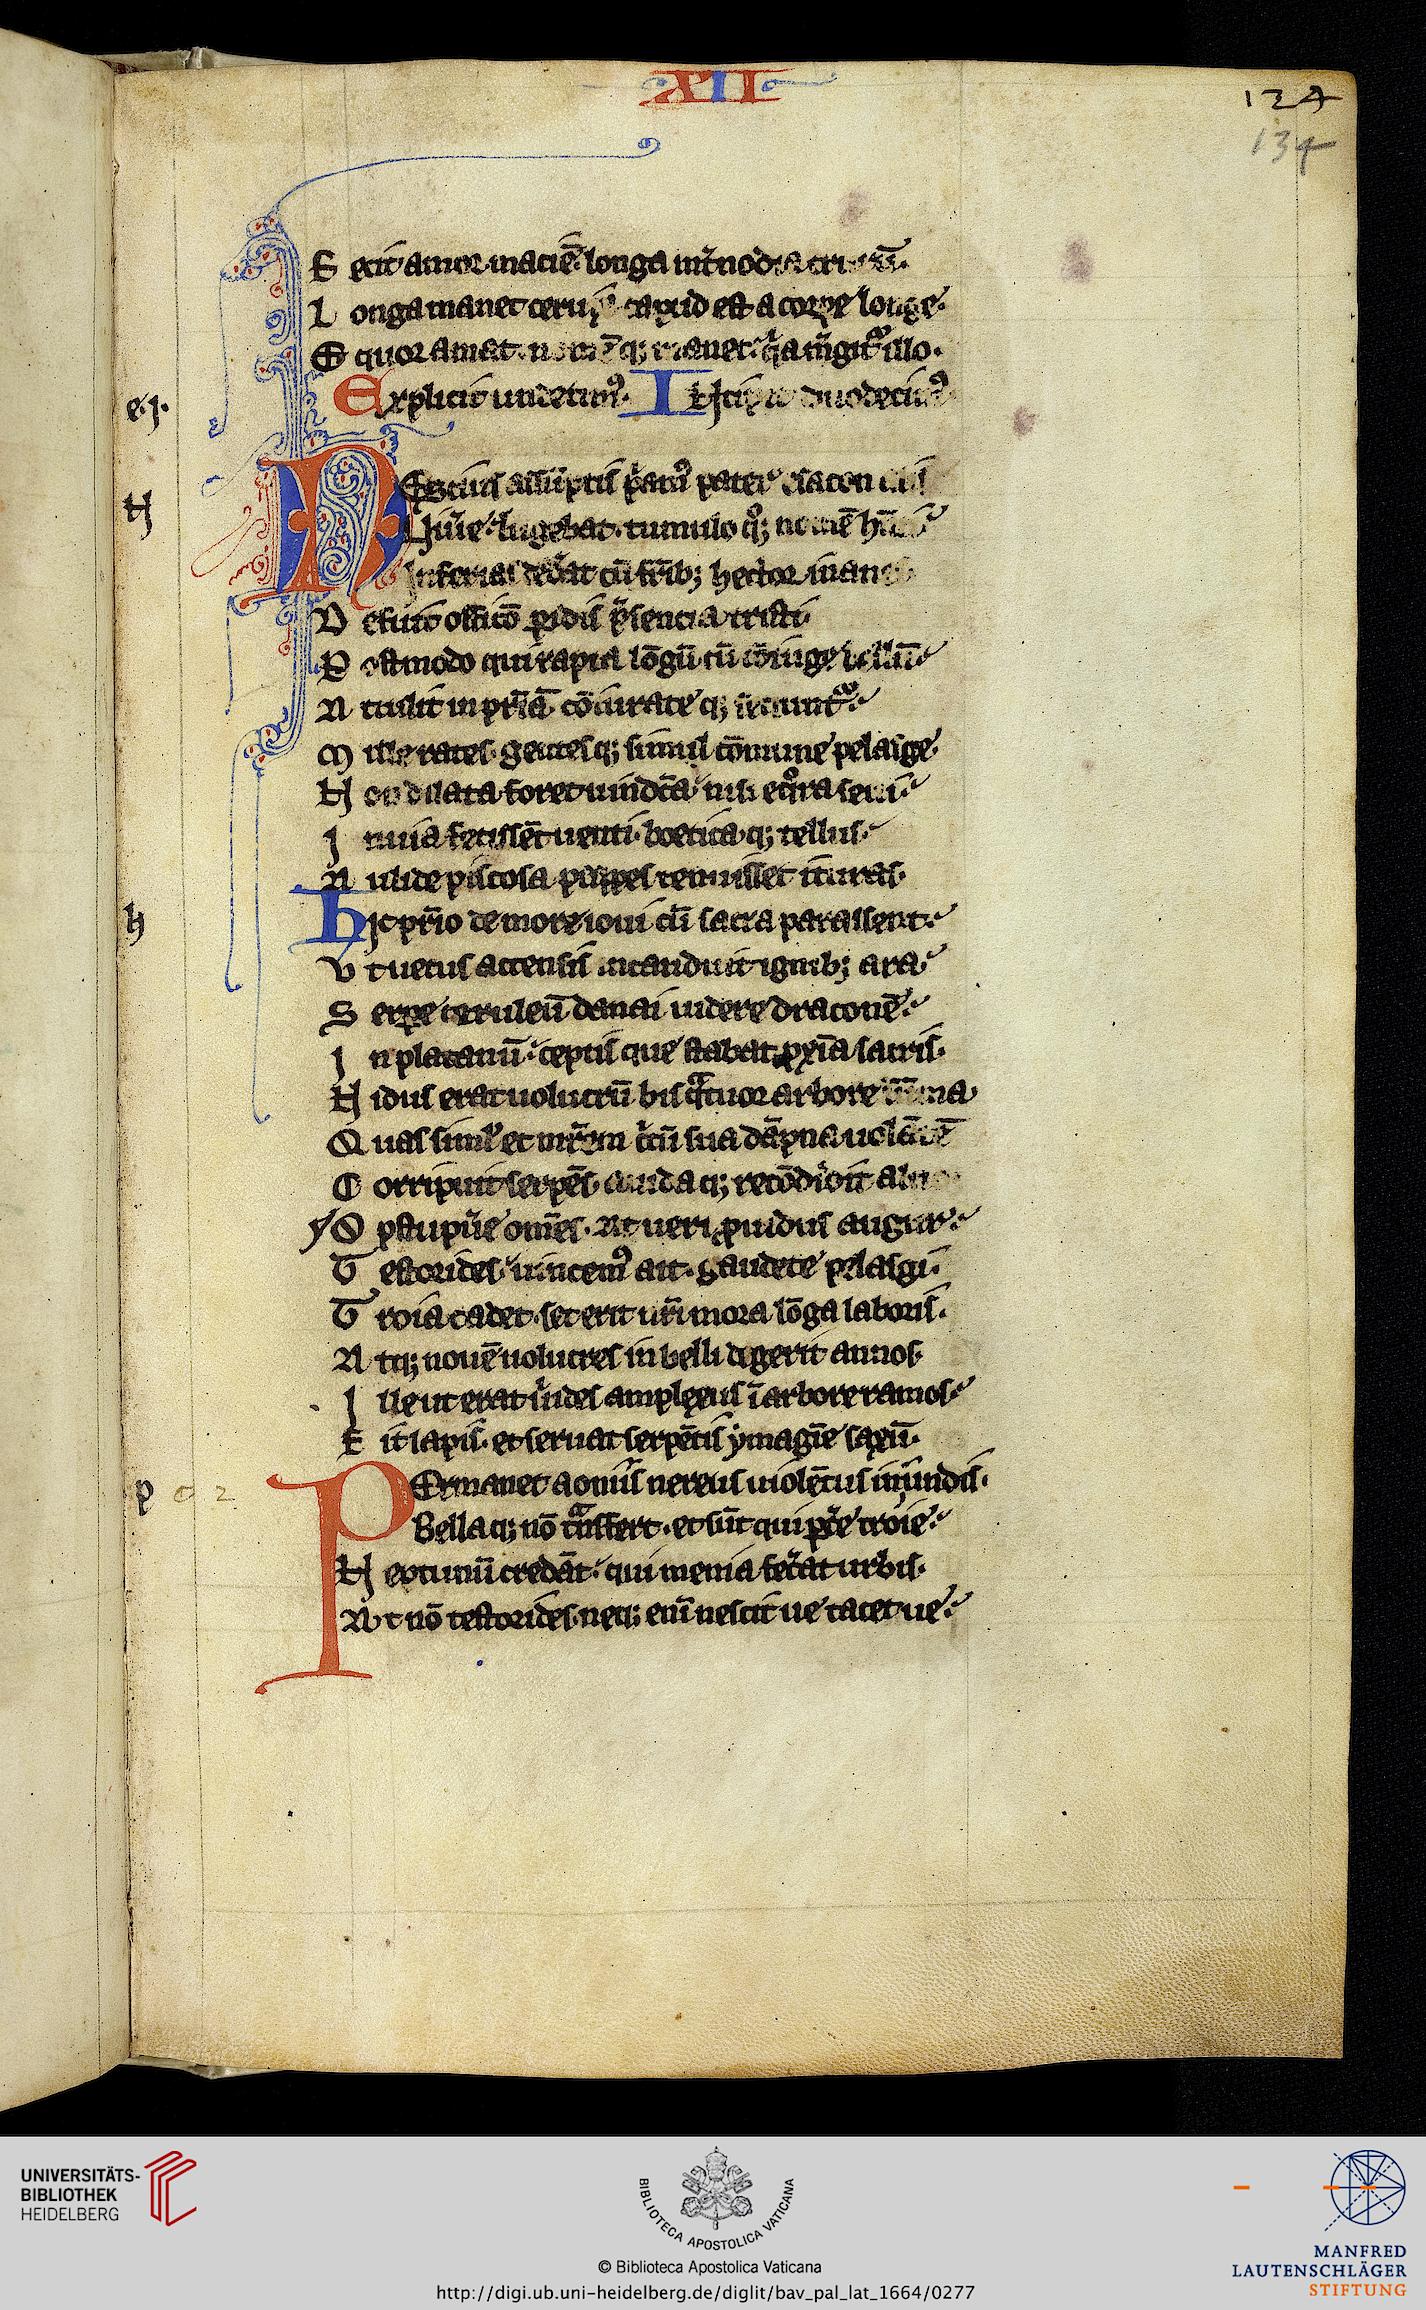 XII
124
134
F ecit amor maciē longa int̄nodia crurū.
L onga manet ceruix caput est a corpe longe.
E quor amat nomēq; manet q̄a mergit᷑ illo.
e.i.
Explicit undecimꝰ Incipit duodecimꝰ
N
NEscius assūptis p̄amꝰ pater esacon alis
Uiu̓e lugebat. tumulo q̊q; nomē hn̄ti
Inferias ded̓at cū fr̄ib; hector inanes
D efuit officō paridis p̄sencia tristi
P ostmodo qui rapta lōgū cū cōiuge bellū
A ttulit in pr̄iā cōiurateq; secunt᷑
M ille rates. gentesq; simul cōmune pelasge.
N on dilata foret uindc̄a nisi eq̊ra seui
I nuia fecissēt uenti. boeticaq; tellus
A ulide piscosa puppes tenuisset ituras.
h
Hic pr̄io de more ioui cū sacra parassent.
V t uetus accensis incanduit ignib; ara
S erpe ceruleū danai uidere draconē.
I n platanū. ceptis que stabat pxīa sacris.
N idus erat uolucrū bis q̄tuor arbore sūma
Q uas simul et mr̄em circū sua dāpna uolātē
C orripuit serpēs. auidaq; recōdidit aluo
O pstupu̓e omēs. At ueri puidus augur.
T estorides. uincemꝰ ait. gaudete pelasgi.
T roia cadet. set erit nr̄i mora lōga laboris.
A tq; nouē uolucres in belli digerit annos.
I lle ut erat uirides amplexus ī arbore ramos.
F it lapis. et seruat serpētis ymagīe saxū.
p
PErmanet aoniis nereus uiolētus in undis.
Bellaq; nō trāsfert. et sūt qui parc̄e troie.
N eptunū credāt. qui menia fec̓at urbis.
A t nō testorides. neq; enī nescit ue tacet ue.
UNIVERSITÄTS-
BIBLIOTHEK
HEIDELBERG
BIBLIOTECA APOSTOLICA VATICANA
© Biblioteca Apostolica Vaticana
http://digi.ub.uni-heidelberg.de/diglit/bav_pal_lat_1664/0277
MANFRED
LAUTENSCHLÄGER
STIFTUNG